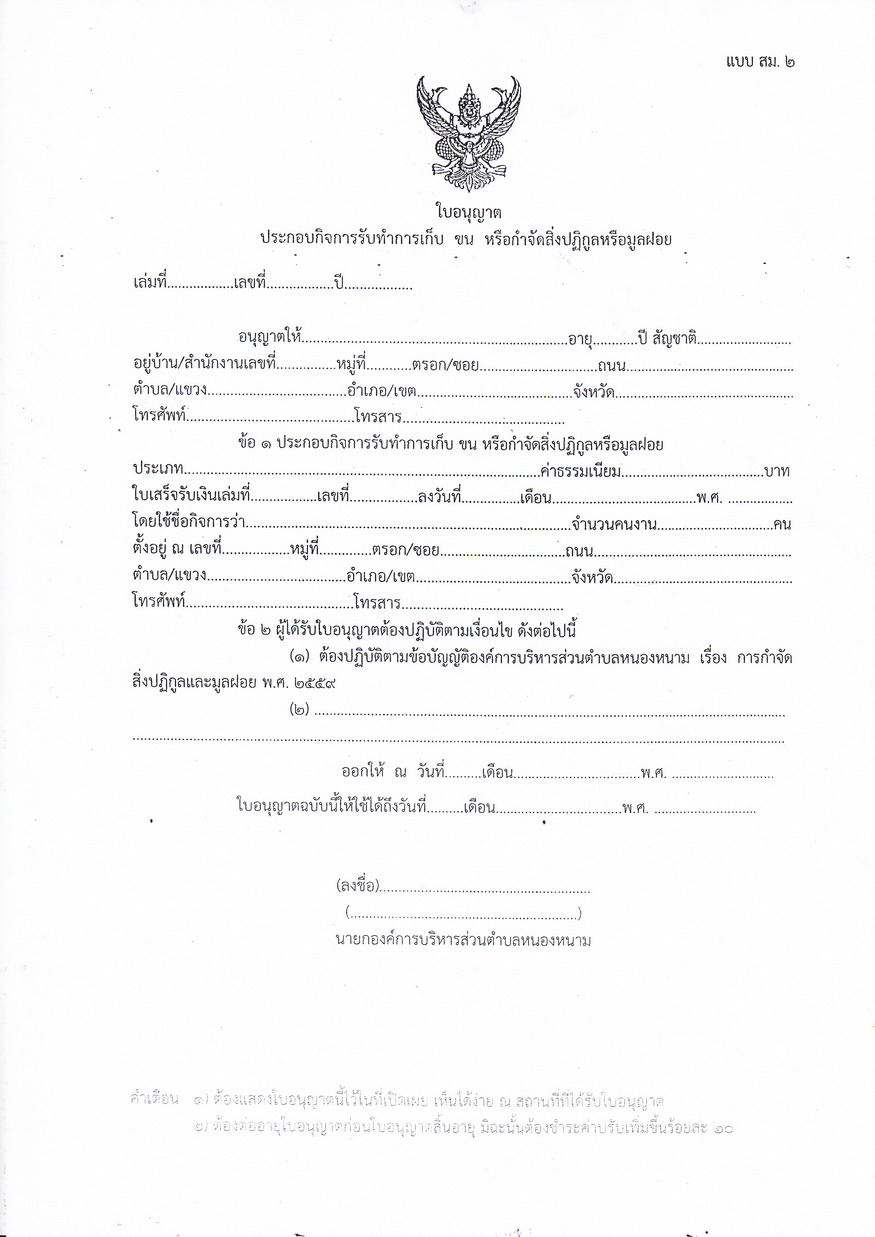 แบบ สม. ๒
ใบอนุญาต
ประกอบกิจการรับทำการเก็บ ขน หรือกำจัดสิ่งปฏิกูลหรือมูลฝอย
เล่มที่.................เลขที่.................ปี.................
อนุญาตให้....................................................................อายุ...........ปี สัญชาติ........................
อยู่บ้าน/สำนักงานเลขที่...............หมู่ที่...........ตรอก/ซอย..............................ถนน...........................................
ตำบล/แขวง...................................อำเภอ/เขต........................................จังหวัด..............................................
โทรศัพท์...........................................โทรสาร..........................................
ข้อ ๑ ประกอบกิจการรับทำการเก็บ ขน หรือกำจัดสิ่งปฏิกูลหรือมูลฝอย
ประเภท...........................................................................................ค่าธรรมเนียม....................................บาท
ใบเสร็จรับเงินเล่มที่.................เลขที่.................ลงวันที่...............เดือน.....................................พ.ศ. .................
โดยใช้ชื่อกิจการว่า...................................................................................จำนวนคนงาน..............................คน
ตั้งอยู่ ณ เลขที่.................หมู่ที่.............ตรอก/ซอย................................ถนน...................................................
ตำบล/แขวง...................................อำเภอ/เขต........................................จังหวัด..............................................
โทรศัพท์...........................................โทรสาร..........................................
ข้อ ๒ ผู้ได้รับใบอนุญาตต้องปฏิบัติตามเงื่อนไข ดังต่อไปนี้
(๑) ต้องปฏิบัติตามข้อบัญญัติองค์การบริหารส่วนตำบลหนองหนาม เรื่อง การกำจัด
สิ่งปฏิกูลและมูลฝอย พ.ศ. ๒๕๕๙
(๒) ........................................................................................................................
......................................................................................................................................................................
ออกให้ ณ วันที่.........เดือน................................พ.ศ. ..........................
ใบอนุญาตฉบับนี้ให้ใช้ได้ถึงวันที่.........เดือน................................พ.ศ. ..........................
(ลงชื่อ)......................................................
(..........................................................)
นายกองค์การบริหารส่วนตำบลหนองหนาม
คำเตือน ๑) ต้องแสดงใบอนุญาตนี้ไว้ในที่เปิดเผย เห็นได้ง่าย ณ สถานที่ที่ได้รับใบอนุญาต
๒) ต้องต่ออายุใบอนุญาตก่อนใบอนุญาตสิ้นอายุ มิฉะนั้นต้องชำระค่าปรับเพิ่มขึ้นร้อยละ ๒๐